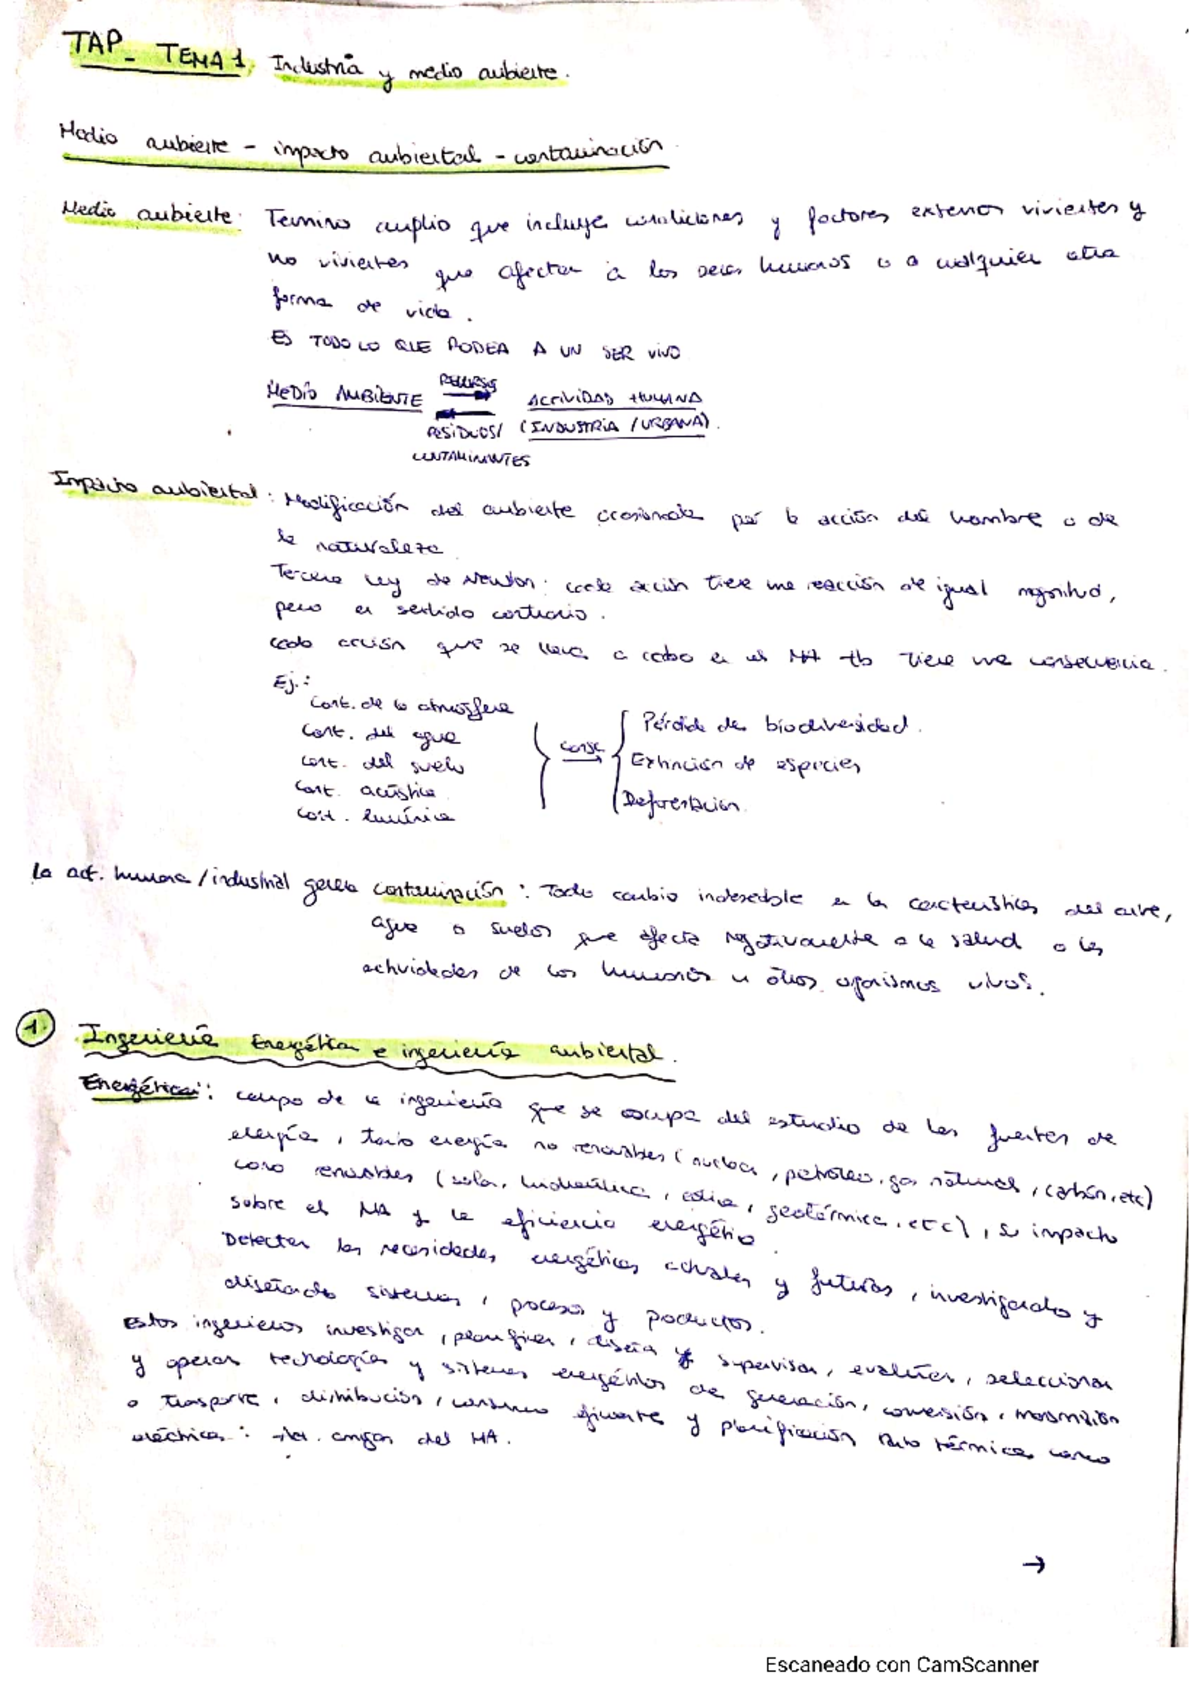 TAP_ TEMA 1. Industria y medio ambiente.
Medio ambiente - impacto ambiental - contaminación
Medio ambiente: Termino amplio que incluye condiciones y factores externos vivientes y
no vivientes que afectan a los seres humanos o a cualquier otra
forma de vida.
ES TODO LO QUE RODEA A UN SER VIVO
MEDIO AMBIENTE RECURSOS ACTIVIDAD HUMANA
RESIDUOS/ (INDUSTRIA / URBANA).
CONTAMINANTES
Impacto ambiental: Modificación del ambiente ocasionada por la acción del hombre o de
la naturaleza
Tercera ley de Newton: cada acción tiene una reacción de igual magnitud,
pero en sentido contrario.
cada acción que se lleva a cabo en el MA tb tiene una consecuencia.
Ej.:
Cont. de la atmósfera
Cont. del agua
Cont. del suelo
Cont. acústica
Cont. lumínica
Pérdida de biodiversidad.
Extinción de especies
Deforestación
La act. humana / industrial genera contaminación: Todo cambio indeseable en las características del aire,
agua o suelos que afecta negativamente a la salud o las
actividades de los humanos u otros organismos vivos.
1 Ingeniería Energética e ingeniería ambiental.
Energética: campo de la ingeniería que se ocupa del estudio de las fuentes de
energía, tanto energía no renovables (nuclear, petróleo, gas natural, carbón, etc)
como renovables (solar, hidraúlica, eólica, geotérmica, etc), su impacto
sobre el MA y la eficiencia energética
Detectan las necesidades energéticas actuales y futuras, investigando y
diseñando sistemas, procesos y productos.
Estos ingenieros investigan, planifican, diseña y supervisan, evalúan, seleccionan
y operan tecnologías y sistemas energéticos de generación, conversión, transmisión
o transporte, distribución, consumo eficiente y planificación tanto térmica como
eléctrica: del MA.
→
Escaneado con CamScanner